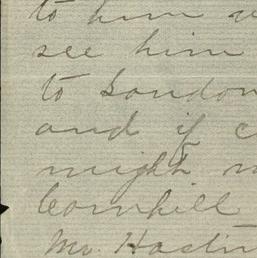 to him
see him
to London
and if
might
Cornhill
Mr. Hastin